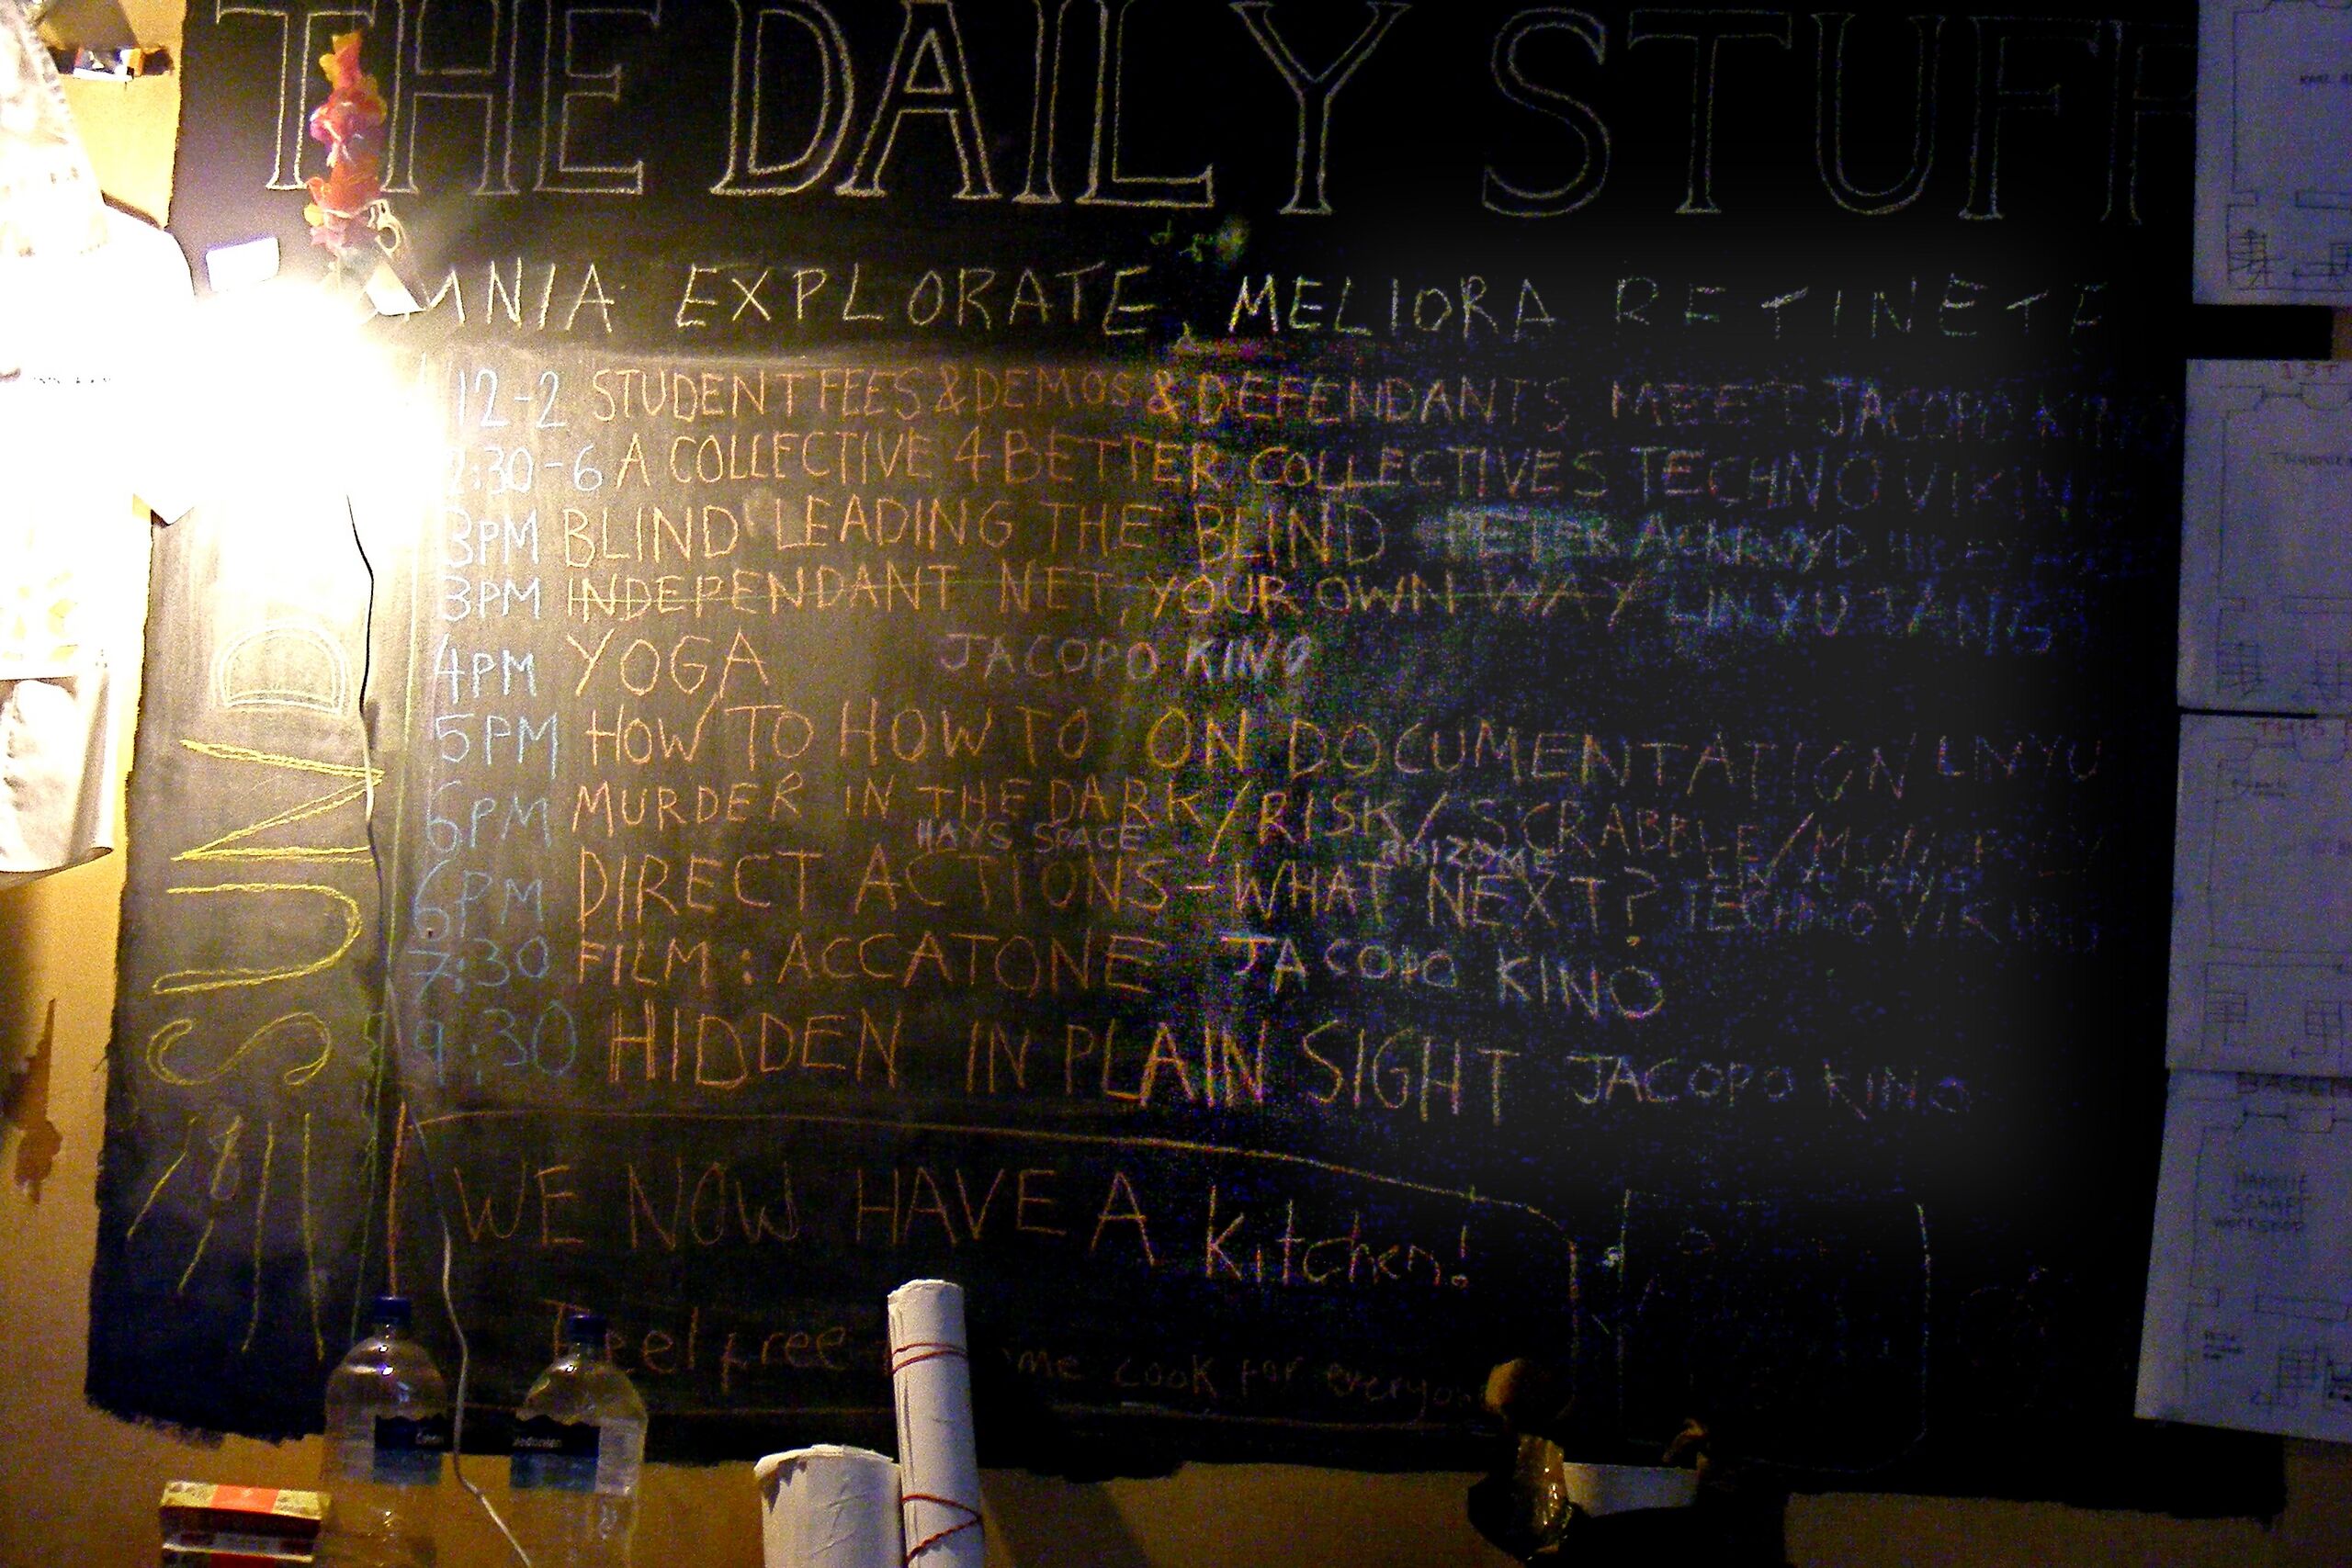 THE DAILY STUFF
OMNIA EXPLORATE MELIORA RETINETE
12-2 STUDENT FEES & DEMOS & DEFENDANTS MEET JACOPO KINO
2:30-6 A COLLECTIVE 4 BETTER COLLECTIVES TECHNO VIKING
3PM BLIND LEADING THE BLIND PETER ACKROYD
3PM INDEPENDANT NET, YOUR OWN WAY LINYU TANG
4PM YOGA JACOPO KINO
5PM HOW TO HOW TO ON DOCUMENTATION LNYU
6PM MURDER IN THE DARK/RISK/SCRABBLE/MONOPOLY
HAYS SPACE RHIZOME
6PM DIRECT ACTIONS - WHAT NEXT? TECHNO VIKING
7:30 FILM: ACCATONE JACOPO KINO
9:30 HIDDEN IN PLAIN SIGHT JACOPO KINO
SUND
WE NOW HAVE A Kitchen!
Feel free cook for everyone
HANNIE
SCHAFT
WORKSHOP